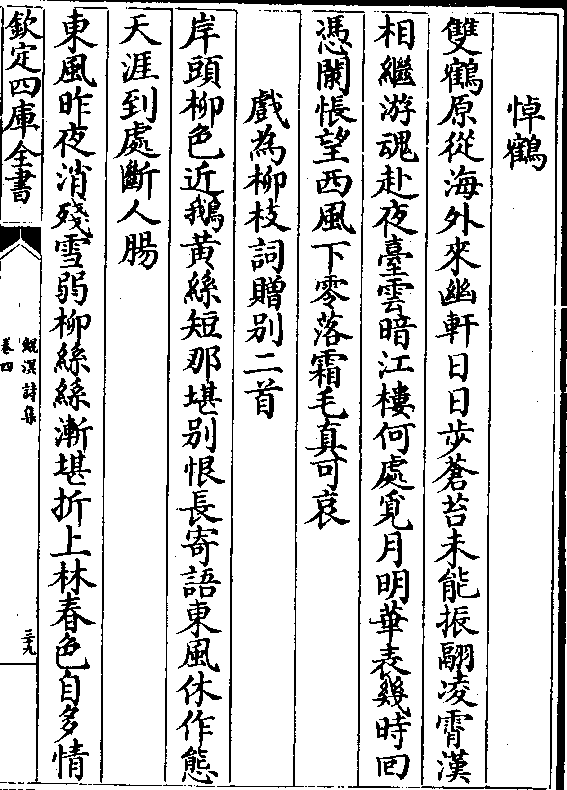 悼鶴
雙鶴原從海外來幽軒日日步蒼苔未能振翮凌霄漢
相繼游魂赴夜臺雲暗江樓何處覓月明華表幾時回
憑闌悵望西風下零落霜毛真可哀
戲為柳枝詞贈别二首
岸頭柳色近鵝黃絲短那堪别恨長寄語東風休作態
天涯到處斷人腸
東風昨夜消殘雪弱柳絲絲漸堪折上林春色自多情
欽定四庫全書
鯤溟詩集
卷四
三九